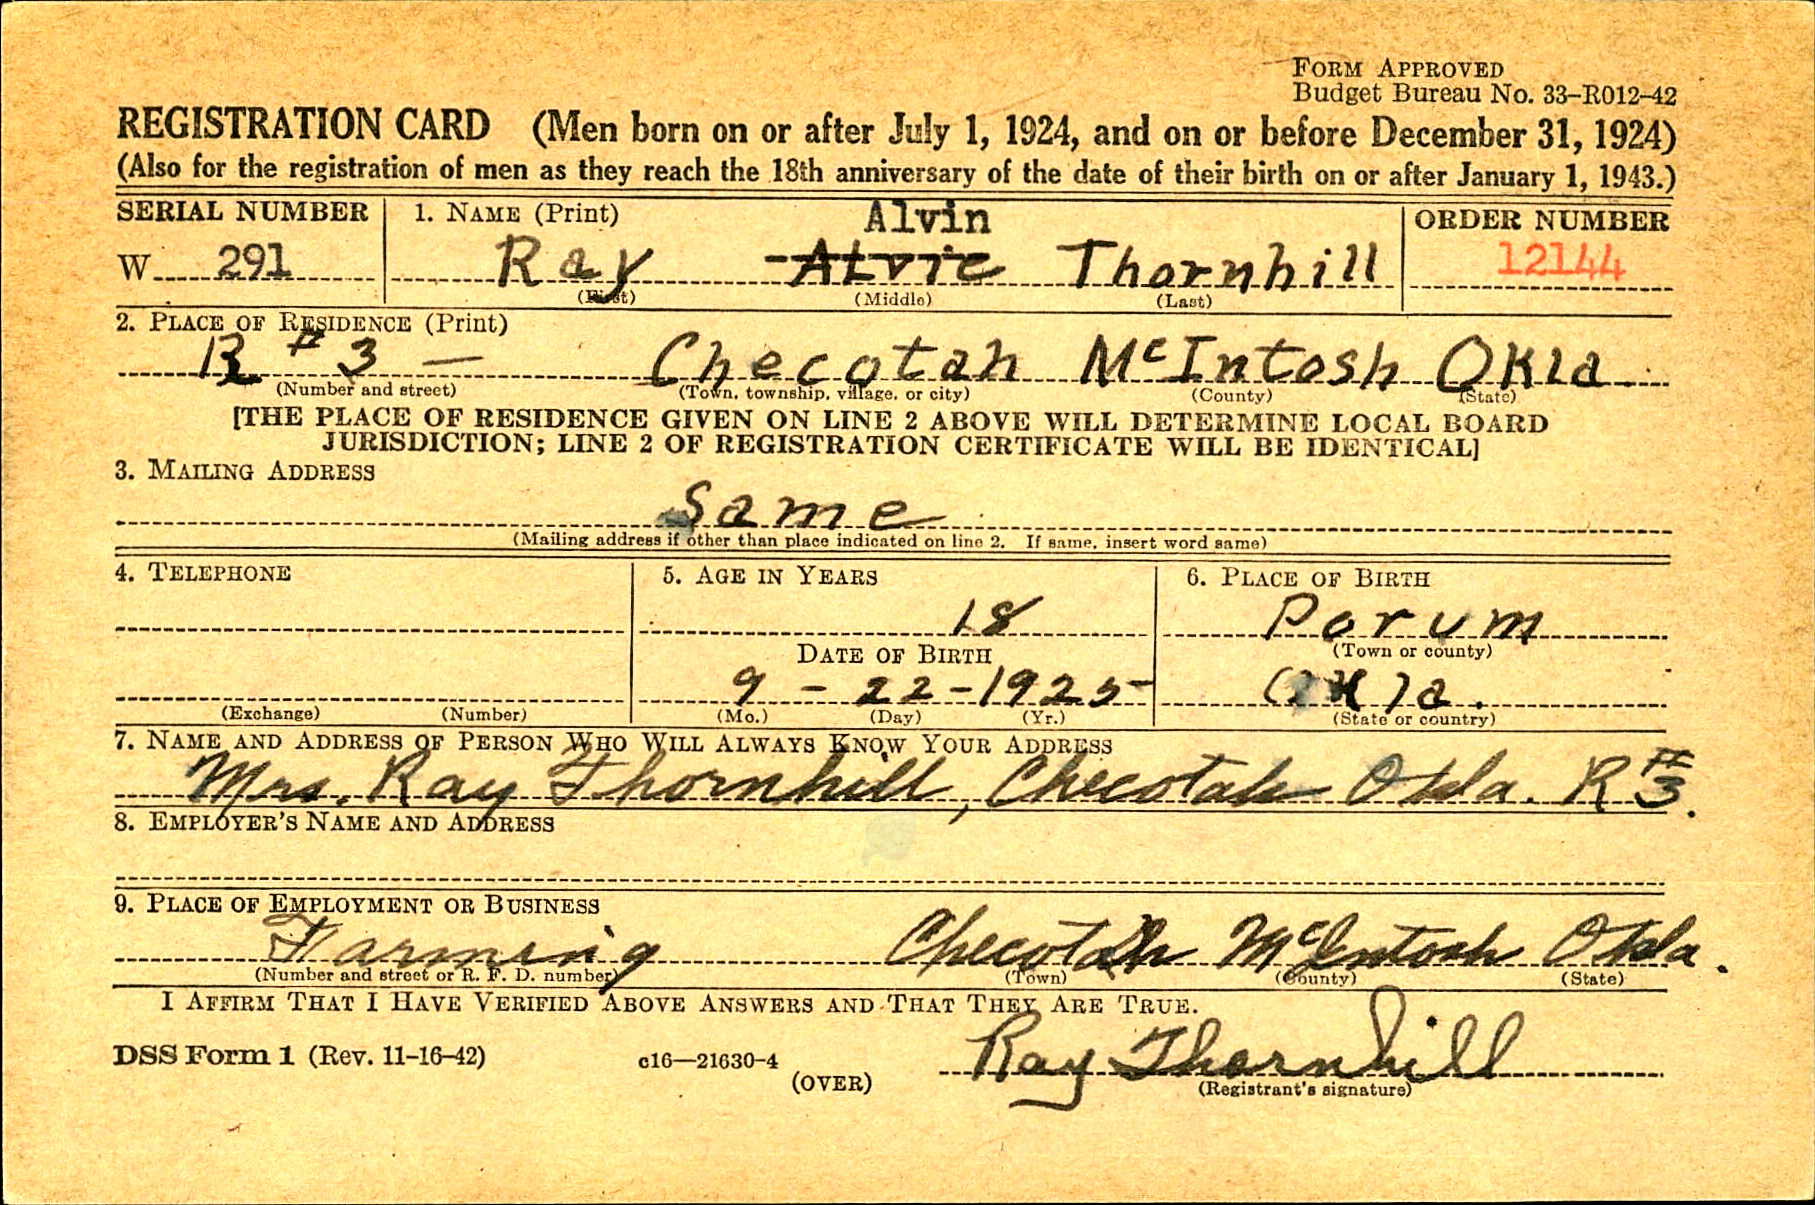 FORM APPROVED
Budget Bureau No. 33–R012–42
REGISTRATION CARD (Men born on or after July 1, 1924, and on or before December 31, 1924)
(Also for the registration of men as they reach the 18th anniversary of the date of their birth on or after January 1, 1943.)
SERIAL NUMBER 1. NAME (Print) Alvin ORDER NUMBER
W 291 Ray Alvie Thornhill 12144
(First) (Middle) (Last)
2. PLACE OF RESIDENCE (Print)
R # 3 — Checotah McIntosh Okla.
(Number and street) (Town, township, village, or city) (County) (State)
[THE PLACE OF RESIDENCE GIVEN ON LINE 2 ABOVE WILL DETERMINE LOCAL BOARD
JURISDICTION; LINE 2 OF REGISTRATION CERTIFICATE WILL BE IDENTICAL]
3. MAILING ADDRESS
Same
(Mailing address if other than place indicated on line 2. If same, insert word same)
4. TELEPHONE 5. AGE IN YEARS 6. PLACE OF BIRTH
18 Porum
DATE OF BIRTH (Town or county)
9 – 22 – 1925 Okla.
(Exchange) (Number) (Mo.) (Day) (Yr.) (State or country)
7. NAME AND ADDRESS OF PERSON WHO WILL ALWAYS KNOW YOUR ADDRESS
Mrs. Ray Thornhill, Checotah Okla. R #3.
8. EMPLOYER'S NAME AND ADDRESS
9. PLACE OF EMPLOYMENT OR BUSINESS
Farming Checotah McIntosh Okla.
(Number and street or R. F. D. number) (Town) (County) (State)
I AFFIRM THAT I HAVE VERIFIED ABOVE ANSWERS AND THAT THEY ARE TRUE.
DSS Form 1 (Rev. 11–16–42) c16—21630-4 (OVER) Ray Thornhill
(Registrant's signature)